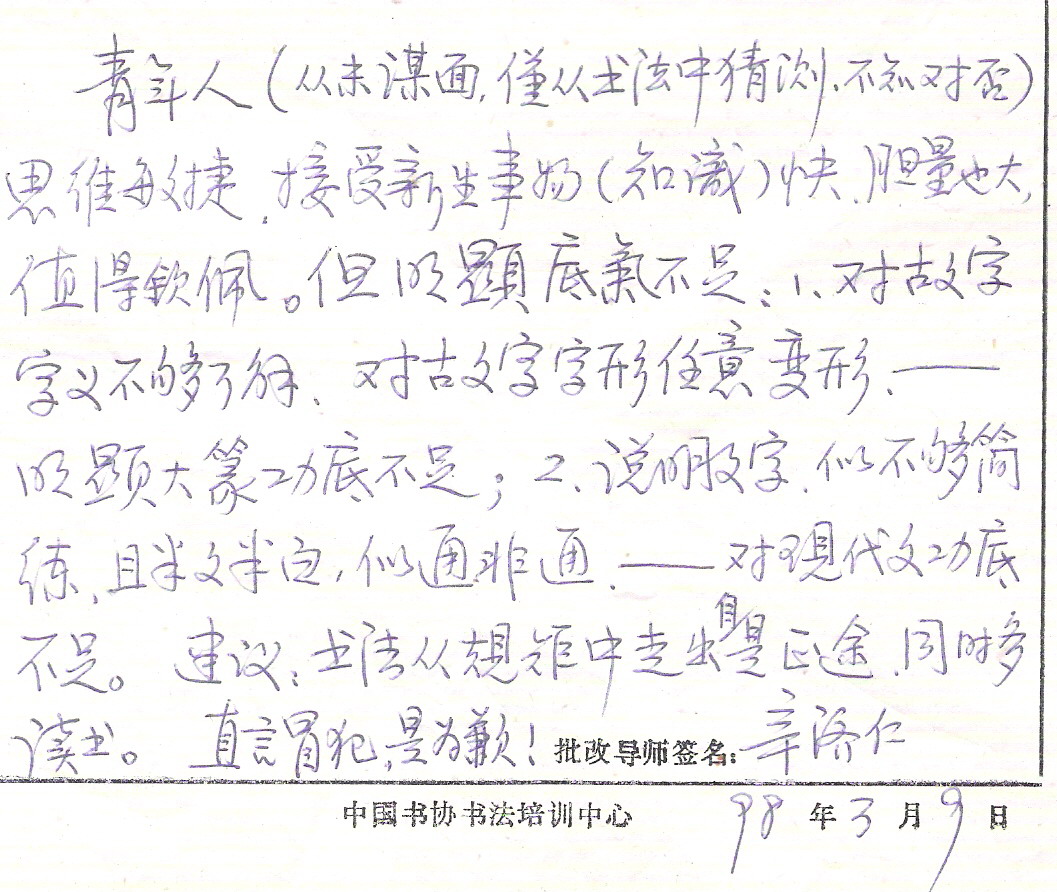 青年人(从未谋面,僅从书法中猜测,不知对否)
思维敏捷,接受新生事物(知識)快、胆量也大,
值得钦佩。但明顯底氣不足:1、对古文字
字义不够了解、对古文字字形任意变形、——
明顯大篆功底不足;2、说明文字,似不够简
练,且半文半白,似通非通、——对现代文功底
不足。 建议:书法从規矩中走出自是正途,同时多
读书。 直言冒犯,是为歉! 批改导师签名:辛济仁
中国书协书法培训中心 98 年 3 月 9 日